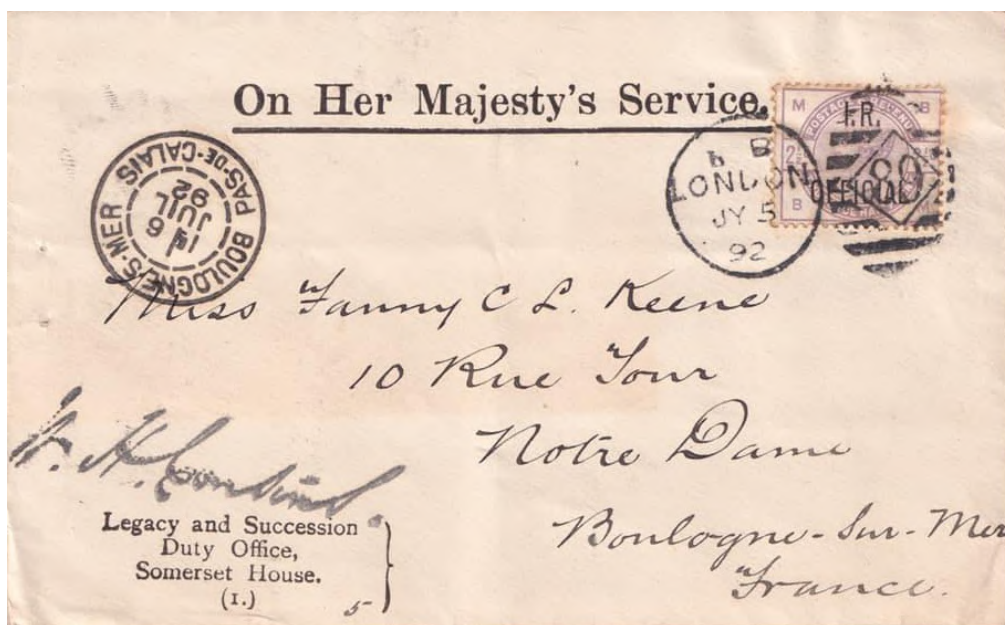 On Her Majesty's Service.
M B
POSTAGE & REVENUE
I.R.
OFFICIAL
B M
B
LONDON
JY 5
92
BOULOGNE-S-MER
PAS-DE-CALAIS
6
JUIL
92
Miss Fanny C L. Keene
10 Rue Tour
Notre Dame
Boulogne-Sur-Mer
France.
Legacy and Succession
Duty Office,
Somerset House.
(1.)
5